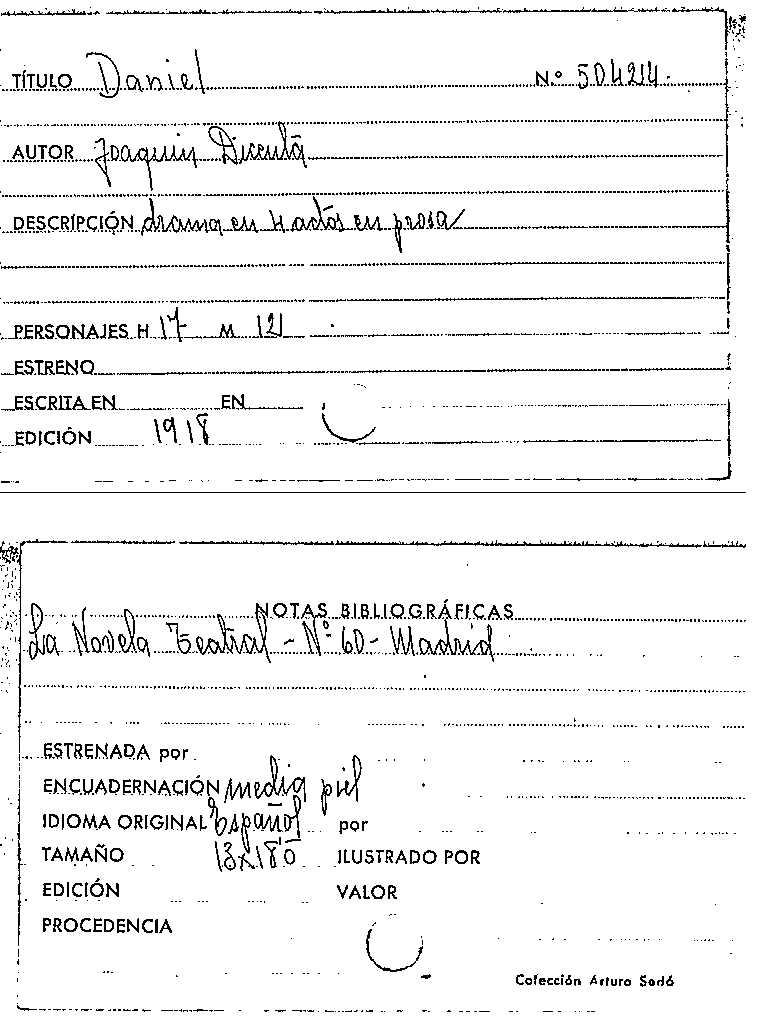 TÍTULO Daniel N.º 504214.
AUTOR Joaquin Dicenta
DESCRIPCIÓN drama en 4 actos en prosa
PERSONAJES H 17 M 12
ESTRENO
ESCRITA EN EN
EDICIÓN 1918
NOTAS BIBLIOGRÁFICAS
La Novela Teatral - Nº 60 - Madrid
ESTRENADA por
ENCUADERNACIÓN media piel
IDIOMA ORIGINAL Español por
TAMAÑO ILUSTRADO POR
EDICIÓN VALOR
PROCEDENCIA
Colección Arturo Sedó